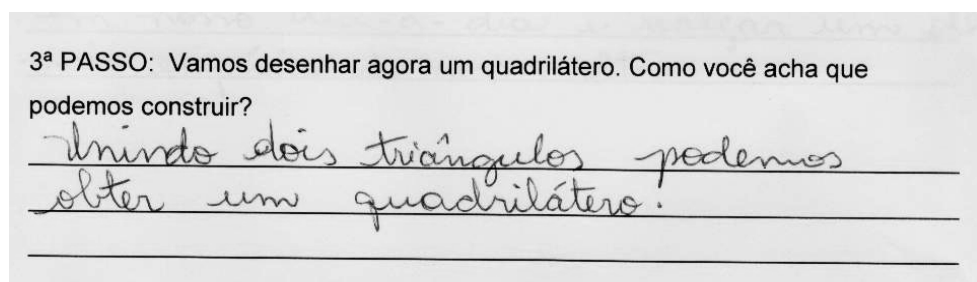 3ª PASSO: Vamos desenhar agora um quadrilátero. Como você acha que
podemos construir?
Unindo dois triângulos podemos
obter um quadrilátero.